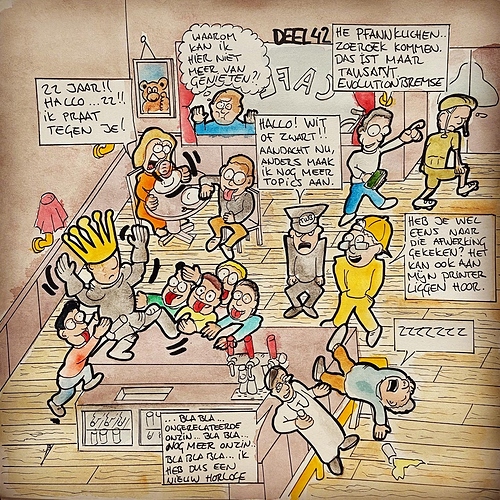 DEEL 42
WAAROM
KAN IK
HIER NIET
MEER VAN
GENIETEN?!
HE PFANNKUCHEN..
ZOEROEK KOMMEN.
DAS IST MAAR
TAUSANT
EVOLUTIONBREMSE
22 JAAR!!
HALLO...22!!
IK PRAAT
TEGEN JE!
CAFÉ
HALLO! WIT
OF ZWART!!
AANDACHT NU,
ANDERS MAAK
IK NOG MEER
TOPICS AAN.
HEB JE WEL
EENS NAAR
DIE AFWERKING
GEKEKEN? HET
KAN OOK AAN
MIJN PRINTER
LIGGEN HOOR.
ZZZZZZZ
...BLA BLA...
ONGERELATEERDE
ONZIN...BLA BLA...
NOG MEER ONZIN..
BLA BLA BLA... IK
HEB DUS EEN
NIEUW HORLOGE